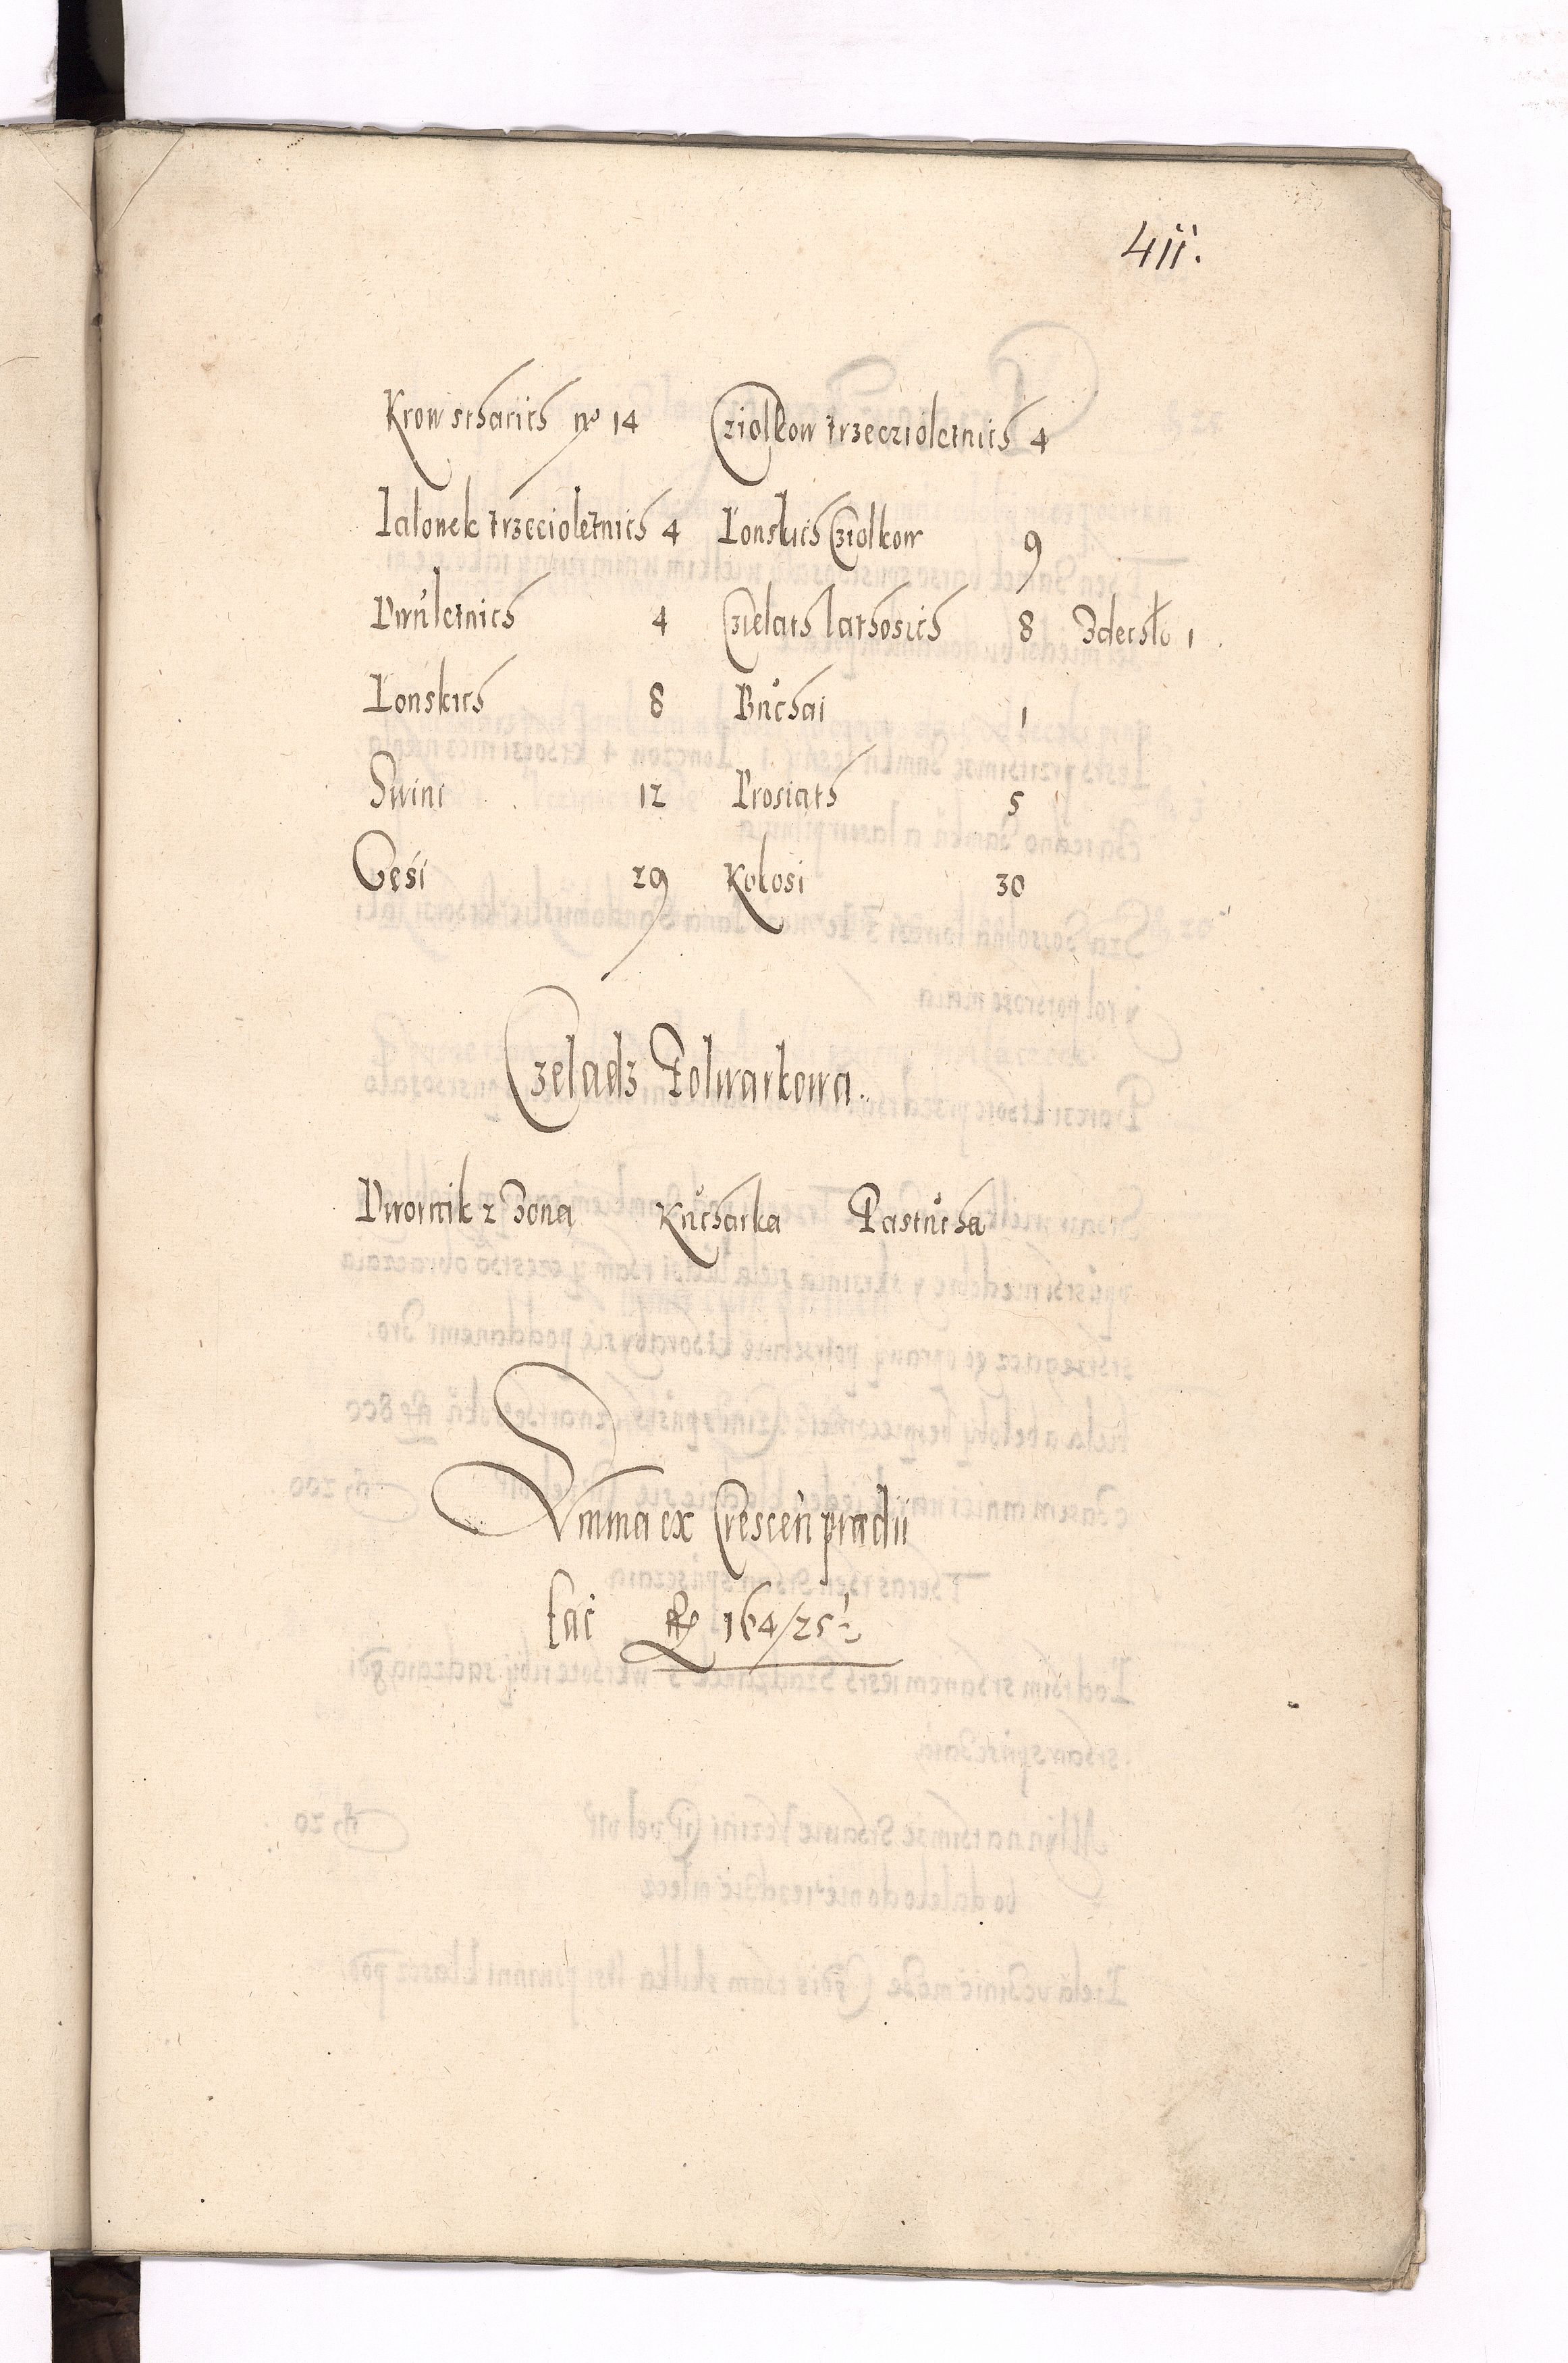 411.
Krow stharich nro 14 Cziolkow trzeczioletnich 4
Ialonek trzecioletnich 4 Łonskich Cziolkow 9
Dwuletnich 4 Czielath lathosich 8 Zdechło 1
Łonskich 8 Buchai 1
Swini 12 Prosiath 5
Gęsi 29 Kokosi 30
Czeladz Folwarkowa.
Dwornik z Zona Kucharka Pastucha
Summa ex Crescen prædii
facit 164/25½